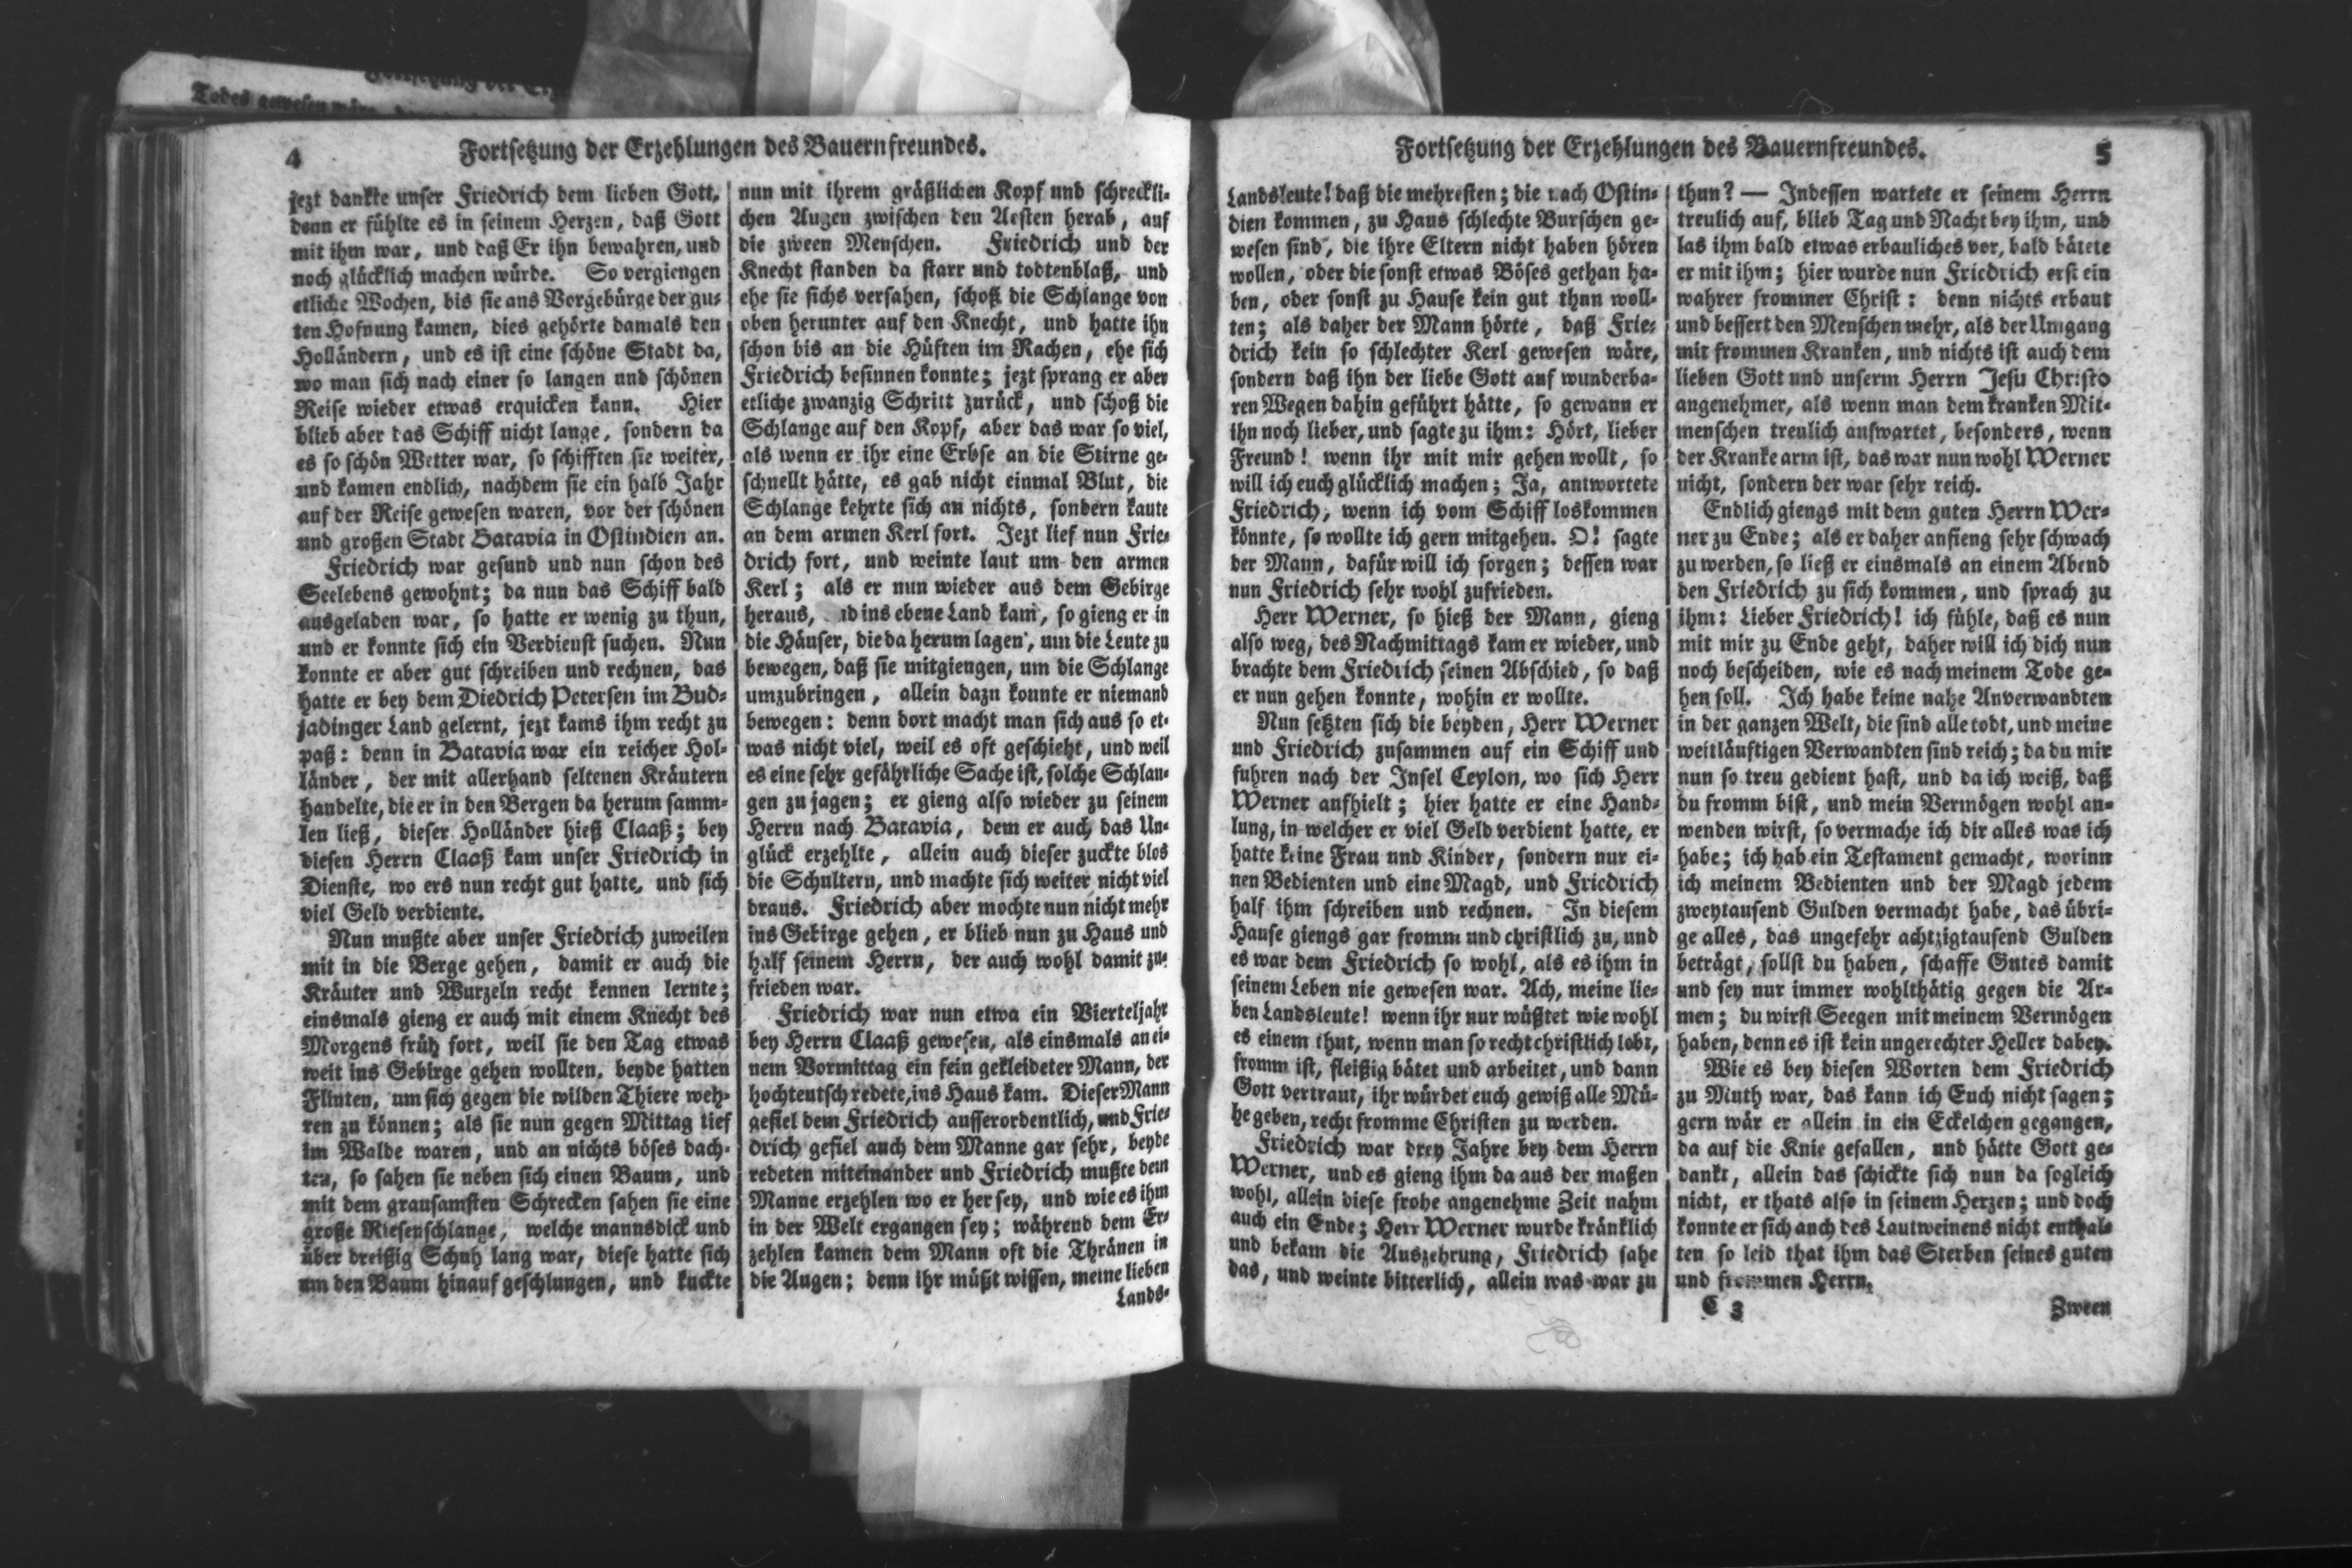 Todes gewesen wäre,
4
Fortsetzung der Erzehlungen des Bauernfreundes.
jezt dankte unser Friedrich dem lieben Gott,
denn er fühlte es in seinem Herzen, daß Gott
mit ihm war, und daß Er ihn bewahren, und
noch glücklich machen würde. So vergiengen
etliche Wochen, bis sie ans Vorgebürge der gu-
ten Hofnung kamen, dies gehörte damals den
Holländern, und es ist eine schöne Stadt da,
wo man sich nach einer so langen und schönen
Reise wieder etwas erquicken kann. Hier
blieb aber das Schiff nicht lange, sondern da
es so schön Wetter war, so schifften sie weiter,
und kamen endlich, nachdem sie ein halb Jahr
auf der Reise gewesen waren, vor der schönen
und großen Stadt Batavia in Ostindien an.
Friedrich war gesund und nun schon des
Seelebens gewohnt; da nun das Schiff bald
ausgeladen war, so hatte er wenig zu thun,
und er konnte sich ein Verdienst suchen. Nun
konnte er aber gut schreiben und rechnen, das
hatte er bey dem Diedrich Petersen im Bud-
jadinger Land gelernt, jezt kams ihm recht zu
paß: denn in Batavia war ein reicher Hol-
länder, der mit allerhand seltenen Kräutern
handelte, die er in den Bergen da herum samm-
len ließ, dieser Holländer hieß Claaß; bey
diesen Herrn Claaß kam unser Friedrich in
Dienste, wo ers nun recht gut hatte, und sich
viel Geld verdiente.
Nun mußte aber unser Friedrich zuweilen
mit in die Berge gehen, damit er auch die
Kräuter und Wurzeln recht kennen lernte;
einsmals gieng er auch mit einem Knecht des
Morgens früh fort, weil sie den Tag etwas
weit ins Gebirge gehen wollten, beyde hatten
Flinten, um sich gegen die wilden Thiere weh-
ren zu können; als sie nun gegen Mittag tief
im Walde waren, und an nichts böses dach-
ten, so sahen sie neben sich einen Baum, und
mit dem grausamsten Schrecken sahen sie eine
große Riesenschlange, welche mannsdick und
über dreißig Schuh lang war, diese hatte sich
um den Baum hinauf geschlungen, und kuckte
nun mit ihrem gräßlichen Kopf und schreckli-
chen Augen zwischen den Aesten herab, auf
die zween Menschen. Friedrich und der
Knecht standen da starr und todtenblaß, und
ehe sie sichs versahen, schoß die Schlange von
oben herunter auf den Knecht, und hatte ihn
schon bis an die Hüften im Rachen, ehe sich
Friedrich besinnen konnte; jezt sprang er aber
etliche zwanzig Schritt zurück, und schoß die
Schlange auf den Kopf, aber das war so viel,
als wenn er ihr eine Erbse an die Stirne ge-
schnellt hätte, es gab nicht einmal Blut, die
Schlange kehrte sich an nichts, sondern kaute
an dem armen Kerl fort. Jezt lief nun Frie-
drich fort, und weinte laut um den armen
Kerl; als er nun wieder aus dem Gebirge
heraus, und ins ebene Land kam, so gieng er in
die Häuser, die da herum lagen, um die Leute zu
bewegen, daß sie mitgiengen, um die Schlange
umzubringen, allein dazu konnte er niemand
bewegen: denn dort macht man sich aus so et-
was nicht viel, weil es oft geschieht, und weil
es eine sehr gefährliche Sache ist, solche Schlan-
gen zu jagen; er gieng also wieder zu seinem
Herrn nach Batavia, dem er auch das Un-
glück erzehlte, allein auch dieser zuckte blos
die Schultern, und machte sich weiter nicht viel
draus. Friedrich aber mochte nun nicht mehr
ins Gebirge gehen, er blieb nun zu Haus und
half seinem Herrn, der auch wohl damit zu-
frieden war.
Friedrich war nun etwa ein Vierteljahr
bey Herrn Claaß gewesen, als einsmals an ei-
nem Vormittag ein fein gekleideter Mann, der
hochteutsch redete, ins Haus kam. Dieser Mann
gefiel dem Friedrich aufferordentlich, und Frie-
drich gefiel auch dem Manne gar sehr, beyde
redeten miteinander und Friedrich mußte dem
Manne erzehlen wo er her sey, und wie es ihm
in der Welt ergangen sey; während dem Er-
zehlen kamen dem Mann oft die Thränen in
die Augen; denn ihr müßt wissen, meine lieben
Lands-
Fortsetzung der Erzehlungen des Bauernfreundes.
5
Landsleute! daß die mehresten; die nach Ostin-
dien kommen, zu Haus schlechte Burschen ge-
wesen sind, die ihre Eltern nicht haben hören
wollen, oder die sonst etwas Böses gethan ha-
ben, oder sonst zu Hause kein gut thun woll-
ten; als daher der Mann hörte, daß Frie-
drich kein so schlechter Kerl gewesen wäre,
sondern daß ihn der liebe Gott auf wunderba-
ren Wegen dahin geführt hätte, so gewann er
ihn noch lieber, und sagte zu ihm: Hört, lieber
Freund! wenn ihr mit mir gehen wollt, so
will ich euch glücklich machen; Ja, antwortete
Friedrich, wenn ich vom Schiff loskommen
könnte, so wollte ich gern mitgehen. O! sagte
der Mann, dafür will ich sorgen; dessen war
nun Friedrich sehr wohl zufrieden.
Herr Werner, so hieß der Mann, gieng
also weg, des Nachmittags kam er wieder, und
brachte dem Friedrich seinen Abschied, so daß
er nun gehen konnte, wohin er wollte.
Nun setzten sich die beyden, Herr Werner
und Friedrich zusammen auf ein Schiff und
fuhren nach der Insel Ceylon, wo sich Herr
Werner aufhielt; hier hatte er eine Hand-
lung, in welcher er viel Geld verdient hatte, er
hatte keine Frau und Kinder, sondern nur ei-
nen Bedienten und eine Magd, und Friedrich
half ihm schreiben und rechnen. In diesem
Hause giengs gar fromm und christlich zu, und
es war dem Friedrich so wohl, als es ihm in
seinem Leben nie gewesen war. Ach, meine lie-
ben Landsleute! wenn ihr nur wüßtet wie wohl
es einem thut, wenn man so recht christlich lebt,
fromm ist, fleißig bätet und arbeitet, und dann
Gott vertraut, ihr würdet euch gewiß alle Mü-
he geben, recht fromme Christen zu werden.
Friedrich war drey Jahre bey dem Herrn
Werner, und es gieng ihm da aus der maßen
wohl, allein diese frohe angenehme Zeit nahm
auch ein Ende; Herr Werner wurde kränklich
und bekam die Auszehrung, Friedrich sahe
das, und weinte bitterlich, allein was war zu
thun? — Indessen wartete er seinem Herrn
treulich auf, blieb Tag und Nacht bey ihm, und
las ihm bald etwas erbauliches vor, bald bätete
er mit ihm; hier wurde nun Friedrich erst ein
wahrer frommer Christ: denn nichts erbaut
und bessert den Menschen mehr, als der Umgang
mit frommen Kranken, und nichts ist auch dem
lieben Gott und unserm Herrn Jesu Christo
angenehmer, als wenn man dem kranken Mit-
menschen treulich aufwartet, besonders, wenn
der Kranke arm ist, das war nun wohl Werner
nicht, sondern der war sehr reich.
Endlich giengs mit dem guten Herrn Wer-
ner zu Ende; als er daher anfieng sehr schwach
zu werden, so ließ er einsmals an einem Abend
den Friedrich zu sich kommen, und sprach zu
ihm: Lieber Friedrich! ich fühle, daß es nun
mit mir zu Ende geht, daher will ich dich nun
noch bescheiden, wie es nach meinem Tode ge-
hen soll. Ich habe keine nahe Anverwandten
in der ganzen Welt, die sind alle todt, und meine
weitläuftigen Verwandten sind reich; da du mir
nun so treu gedient hast, und da ich weiß, daß
du fromm bist, und mein Vermögen wohl an-
wenden wirst, so vermache ich dir alles was ich
habe; ich hab ein Testament gemacht, worinn
ich meinem Bedienten und der Magd jedem
zweytausend Gulden vermacht habe, das übri-
ge alles, das ungefehr achtzigtausend Gulden
beträgt, sollst du haben, schaffe Gutes damit
und sey nur immer wohlthätig gegen die Ar-
men; du wirst Seegen mit meinem Vermögen
haben, denn es ist kein ungerechter Heller dabey.
Wie es bey diesen Worten dem Friedrich
zu Muth war, das kann ich Euch nicht sagen;
gern wär er allein in ein Eckelchen gegangen,
da auf die Knie gefallen, und hätte Gott ge-
dankt, allein das schickte sich nun da sogleich
nicht, er thats also in seinem Herzen; und doch
konnte er sich auch des Lautweinens nicht enthal-
ten so leid that ihm das Sterben seines guten
und frommen Herrn.
C 3
Zween